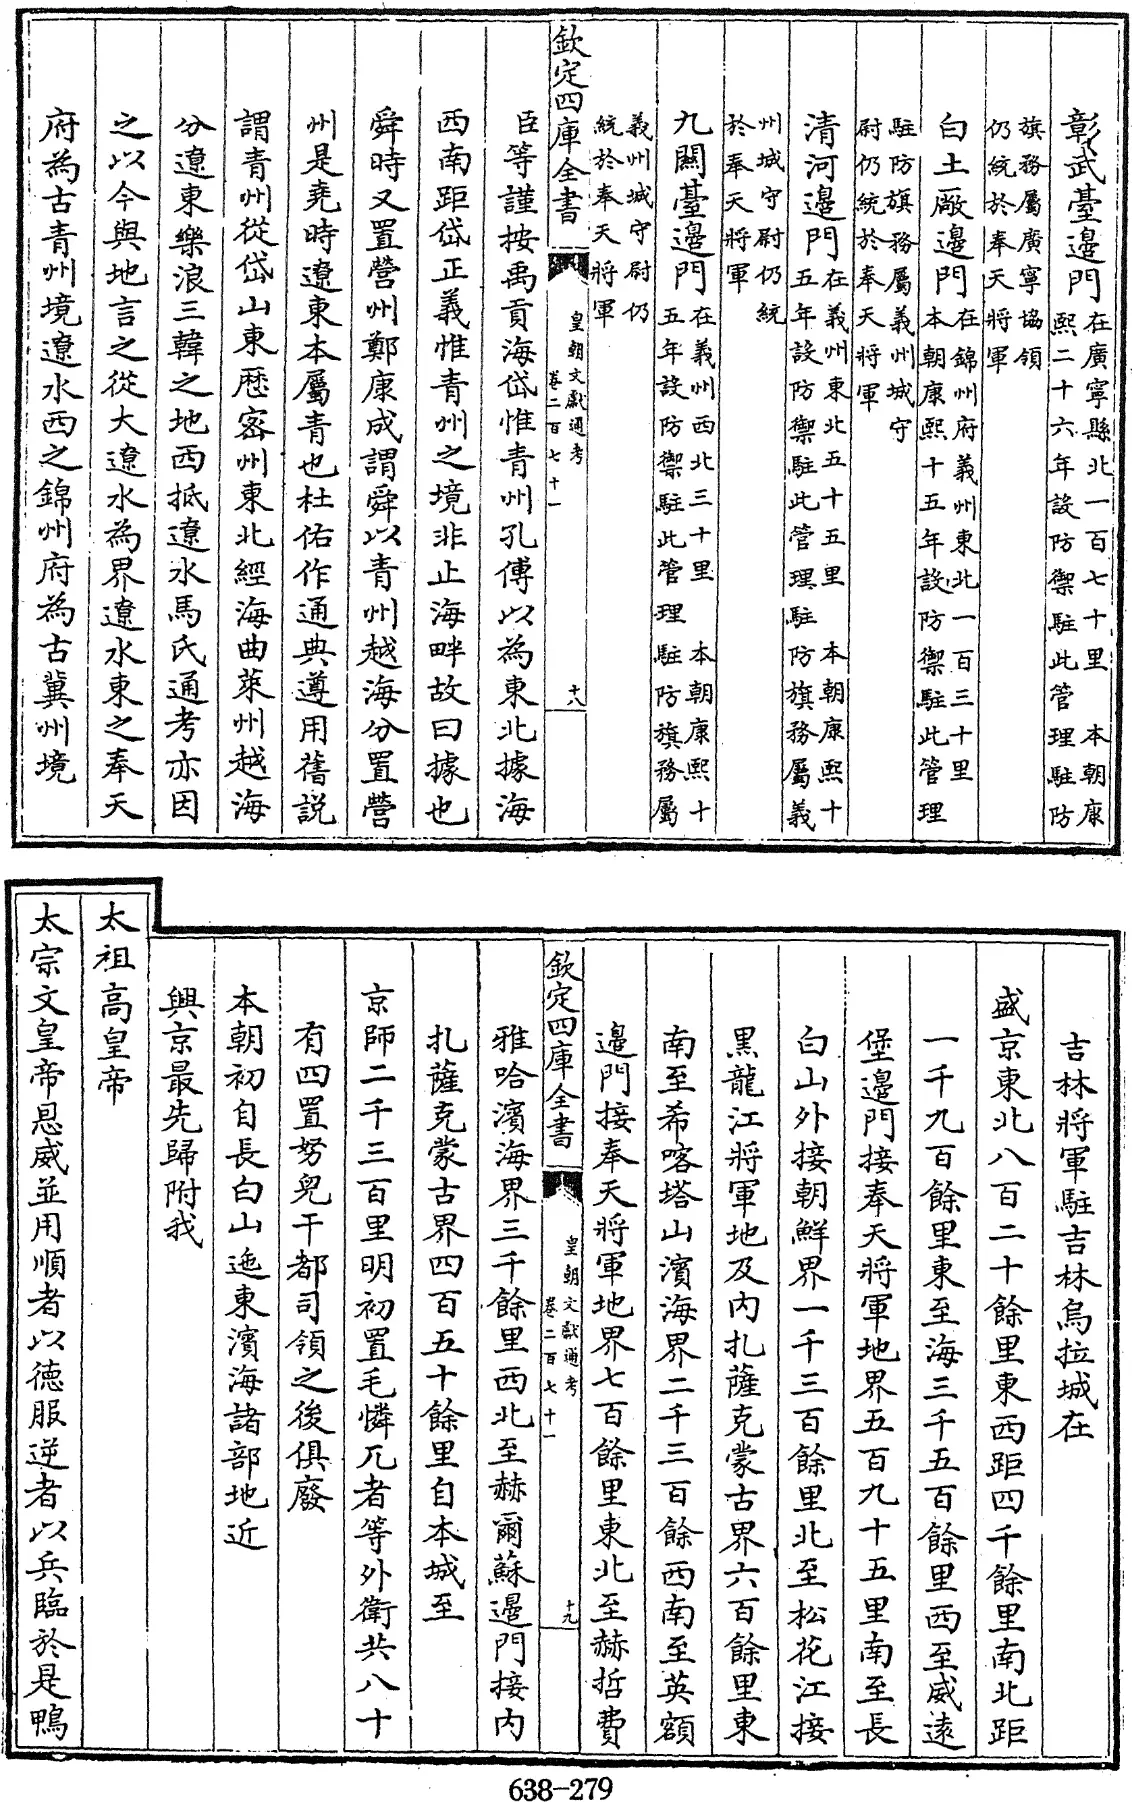 彰武臺邊門在廣寧縣北一百七十里　本朝康
熙二十六年設防禦駐此管理駐防
旗務屬廣寧協領
仍統於奉天將軍
白土厰邊門在錦州府義州東北一百三十里
本朝康熙十五年設防禦駐此管理
駐防旗務屬義州城守
尉仍統於奉天將軍
清河邊門在義州東北五十五里　本朝康熙十
五年設防禦駐此管理駐防旗務屬義
州城守尉仍統
於奉天將軍
九關臺邊門在義州西北三十里　本朝康熙十
五年設防禦駐此管理駐防旗務屬
義州城守尉仍
統於奉天將軍
欽定四庫全書
皇朝文獻通考
卷二百七十一
十八
臣等謹按禹貢海岱惟青州孔傳以為東北據海
西南距岱正義惟青州之境非止海畔故曰據也
舜時又置營州鄭康成謂舜以青州越海分置營
州是堯時遼東本屬青也杜佑作通典遵用舊説
謂青州從岱山東歷密州東北經海曲萊州越海
分遼東樂浪三韓之地西抵遼水馬氏通考亦因
之以今輿地言之從大遼水為界遼水東之奉天
府為古青州境遼水西之錦州府為古冀州境
吉林將軍駐吉林烏拉城在
盛京東北八百二十餘里東西距四千餘里南北距
一千九百餘里東至海三千五百餘里西至威遠
堡邊門接奉天將軍地界五百九十五里南至長
白山外接朝鮮界一千三百餘里北至松花江接
黑龍江將軍地及内扎薩克蒙古界六百餘里東
南至希喀塔山濱海界二千三百餘西南至英額
邊門接奉天將軍地界七百餘里東北至赫哲費
欽定四庫全書
皇朝文獻通考
卷二百七十一
十九
雅哈濱海界三千餘里西北至赫爾蘇邊門接内
扎薩克蒙古界四百五十餘里自本城至
京師二千三百里明初置毛憐兀者等外衛共八十
有四置努兒干都司領之後俱廢
本朝初自長白山迤東濱海諸部地近
興京最先歸附我
太祖高皇帝
太宗文皇帝恩威並用順者以德服逆者以兵臨於是鴨
638-279